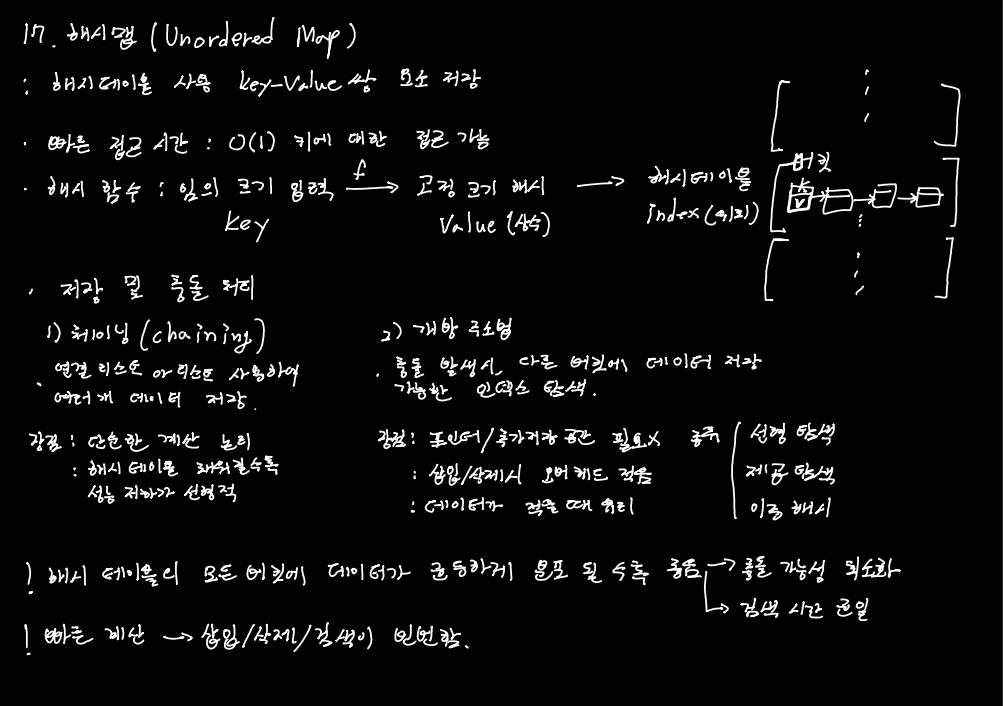 17. 해시맵 (Unordered Map)
: 해시테이블 사용 key-value 쌍 요소 저장
· 빠른 접근 시간 : O(1) 키에 대한 접근 가능
· 해시 함수 : 임의 크기 입력 f → 고정 크기 해시 → 해시테이블
key value (상수) index (위치)
버킷
k
v
· 저장 및 충돌 처리
1) 체이닝 (chaining)
연결 리스트 or 리스트 사용하여
· 여러개 데이터 저장.
장점 : 단순한 계산 논리
: 해시 테이블 채워질수록
성능 저하가 선형적
2) 개방 주소법
· 충돌 발생시, 다른 버킷에 데이터 저장
가능한 인덱스 탐색.
장점 : 포인터/추가저장 공간 필요x
: 삽입/삭제시 오버헤드 적음
: 데이터가 적을 때 유리
종류
선형 탐색
제곱 탐색
이중 해시
! 해시 테이블의 모든 버킷에 데이터가 균등하게 분포 될 수록 좋음 → 충돌 가능성 최소화
→ 검색 시간 균일
! 빠른 계산 → 삽입/삭제/검색이 빈번함.